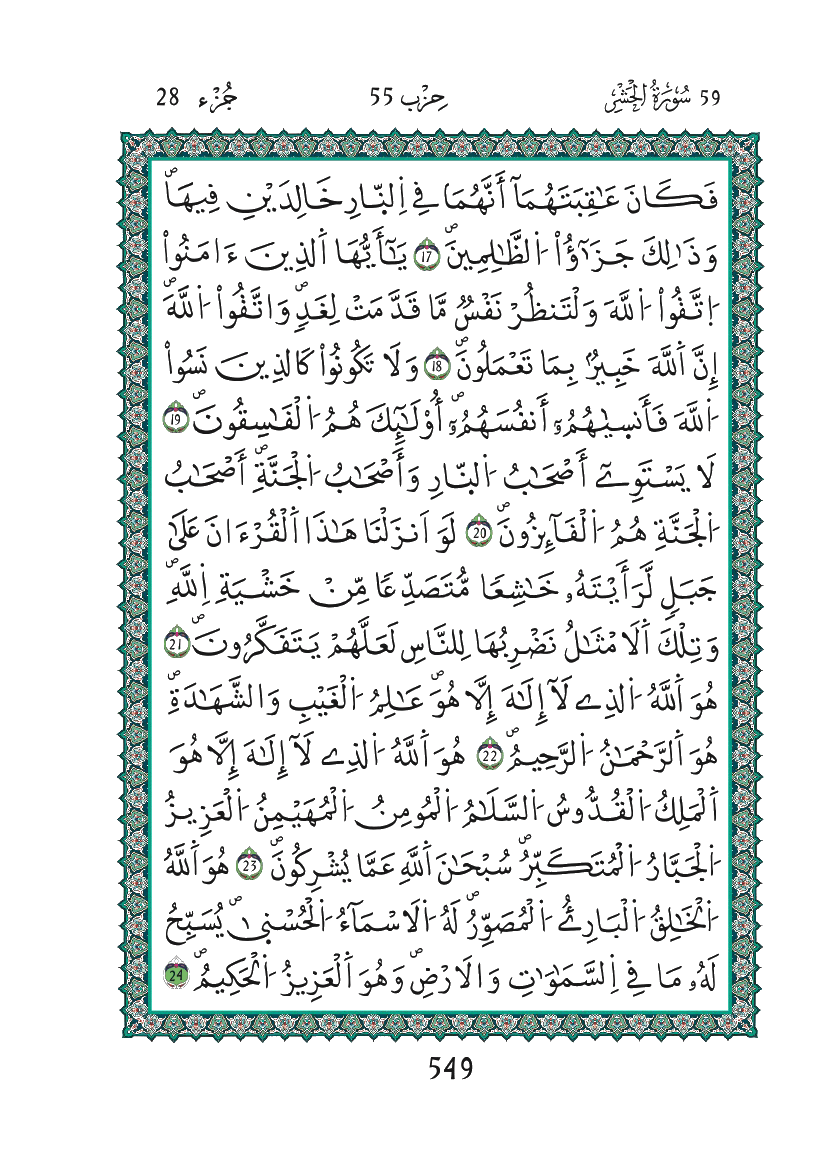 59 سُورَةُ الْحَشْرِ حِزْب 55 جُزْء 28
فَكَانَ عَٰقِبَتَهُمَآ أَنَّهُمَا فِے اِ۬لنّ۪ارِ خَٰلِدَيْنِ فِيهَاۖ
وَذَٰلِكَ جَزَٰٓؤُاْ اُ۬لظَّٰلِمِينَۖ 17 يَٰٓأَيُّهَا اَ۬لذِينَ ءَامَنُواْ
اُ۪تَّقُواْ اُ۬للَّهَ وَلْتَنظُرْ نَفْسٞ مَّا قَدَّمَتْ لِغَدٖۖ وَاتَّقُواْ اُ۬للَّهَۖ
إِنَّ اَ۬للَّهَ خَبِيرُۢ بِمَا تَعْمَلُونَۖ 18 وَلَا تَكُونُواْ كَالذِينَ نَسُواْ
اُ۬للَّهَ فَأَنس۪يٰهُمُۥٓ أَنفُسَهُمُۥٓۖ أُوْلَٰٓئِكَ هُمُ اُ۬لْفَٰسِقُونَۖ 19
لَا يَسْتَوِےٓ أَصْحَٰبُ اُ۬لنّ۪ارِ وَأَصْحَٰبُ اُ۬لْجَنَّةِۖ أَصْحَٰبُ
اُ۬لْجَنَّةِ هُمُ اُ۬لْفَآئِزُونَۖ 20 لَوَ اَنزَلْنَا هَٰذَا اَ۬لْقُرْءَانَ عَلَىٰ
جَبَلٖ لَّرَأَيْتَهُۥ خَٰشِعاٗ مُّتَصَدِّعاٗ مِّنْ خَشْيَةِ اِ۬للَّهِۖ
وَتِلْكَ اَ۬لَامْثَٰلُ نَضْرِبُهَا لِلنَّاسِ لَعَلَّهُمْ يَتَفَكَّرُونَۖ 21
هُوَ اَ۬للَّهُ اُ۬لذِے لَآ إِلَٰهَ إِلَّا هُوَۖ عَٰلِمُ اُ۬لْغَيْبِ وَالشَّهَٰدَةِۖ
هُوَ اَ۬لرَّحْمَٰنُ اُ۬لرَّحِيمُۖ 22 هُوَ اَ۬للَّهُ اُ۬لذِے لَآ إِلَٰهَ إِلَّا هُوَ
اَ۬لْمَلِكُ اُ۬لْقُدُّوسُ اُ۬لسَّلَٰمُ اُ۬لْمُومِنُ اُ۬لْمُهَيْمِنُ اُ۬لْعَزِيزُ
اُ۬لْجَبَّارُ اُ۬لْمُتَكَبِّرُۖ سُبْحَٰنَ اَ۬للَّهِ عَمَّا يُشْرِكُونَۖ 23 هُوَ اَ۬للَّهُ
اُ۬لْخَٰلِقُ اُ۬لْبَارِئُ اُ۬لْمُصَوِّرُۖ لَهُ اُ۬لَاسْمَآءُ اُ۬لْحُسْن۪يٰۖ يُسَبِّحُ
لَهُۥ مَا فِے اِ۬لسَّمَٰوَٰتِ وَالَارْضِۖ وَهُوَ اَ۬لْعَزِيزُ اُ۬لْحَكِيمُۖ 24
549